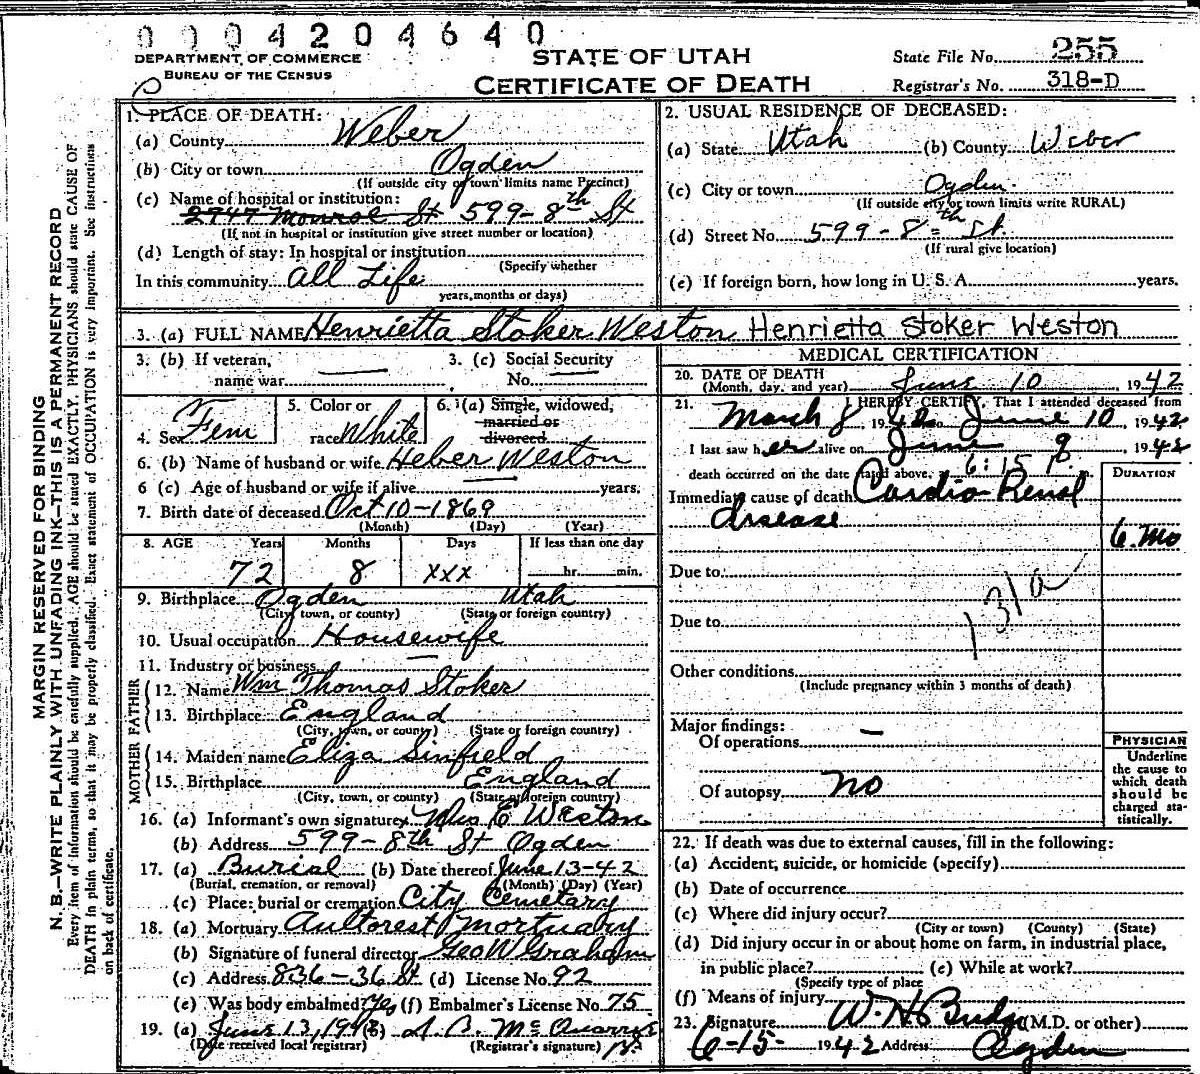 0004204640
DEPARTMENT OF COMMERCE
BUREAU OF THE CENSUS
STATE OF UTAH
CERTIFICATE OF DEATH
State File No. 255
Registrar's No. 318-D
MARGIN RESERVED FOR BINDING
N. B.—WRITE PLAINLY WITH UNFADING INK—THIS IS A PERMANENT RECORD
Every item of information should be carefully supplied. AGE should be stated EXACTLY. PHYSICIANS should state CAUSE OF
DEATH in plain terms, so that it may be properly classified. Exact statement of OCCUPATION is very important. See instructions
on back of certificate.
1. PLACE OF DEATH:
(a) County Weber
(b) City or town Ogden
(If outside city or town limits name Precinct)
(c) Name of hospital or institution:
2947 Monroe St 599-8th St
(If not in hospital or institution give street number or location)
(d) Length of stay: In hospital or institution
(Specify whether
In this community All Life
years, months or days)
2. USUAL RESIDENCE OF DECEASED:
(a) State Utah (b) County Weber
(c) City or town Ogden
(If outside city or town limits write RURAL)
(d) Street No. 599-8th St.
(If rural give location)
(e) If foreign born, how long in U. S. A. years.
3. (a) FULL NAME Henrietta Stoker Weston Henrietta Stoker Weston
3. (b) If veteran, name war
3. (c) Social Security No.
4. Sex Fem
5. Color or race White
6. (a) Single, widowed, married or divorced
6. (b) Name of husband or wife Heber Weston
6 (c) Age of husband or wife if alive years.
7. Birth date of deceased Oct 10-1869
(Month) (Day) (Year)
8. AGE Years Months Days If less than one day
72 8 xxx hr. min.
9. Birthplace Ogden Utah
(City, town, or county) (State or foreign country)
10. Usual occupation Housewife
11. Industry or business
FATHER
12. Name Wm Thomas Stoker
13. Birthplace England
(City, town, or county) (State or foreign country)
MOTHER
14. Maiden name Eliza Sinfield
15. Birthplace England
(City, town, or county) (State or foreign country)
16. (a) Informant's own signature Mrs E Weston
(b) Address 599-8th St Ogden
17. (a) Burial (b) Date thereof June 13-42
(Burial, cremation, or removal) (Month) (Day) (Year)
(c) Place: burial or cremation City Cemetary
18. (a) Mortuary Aultorest Mortuary
(b) Signature of funeral director Geo W Graham
(c) Address 836-36 St (d) License No. 92
(e) Was body embalmed? Yes (f) Embalmer's License No. 75
19. (a) June 13, 1942 (b)
(Date received local registrar) (Registrar's signature)
MEDICAL CERTIFICATION
20. DATE OF DEATH
(Month, day, and year) June 10, 1942
21. I HEREBY CERTIFY, That I attended deceased from
March 8 1942 to June 10, 1942
I last saw her alive on June 8, 1942
death occurred on the date stated above, 6:15 P.
Immediate cause of death Cardio-Renal
disease
DURATION
6. Mo
Due to
Due to
131a
Other conditions
(Include pregnancy within 3 months of death)
Major findings:
Of operations —
Of autopsy no
PHYSICIAN
Underline
the cause to
which death
should be
charged sta-
tistically.
22. If death was due to external causes, fill in the following:
(a) Accident, suicide, or homicide (specify)
(b) Date of occurrence
(c) Where did injury occur?
(City or town) (County) (State)
(d) Did injury occur in or about home on farm, in industrial place,
in public place? (e) While at work?
(Specify type of place
(f) Means of injury
23. Signature W. H. Budge (M.D. or other)
6-15- 1942 Address Ogden